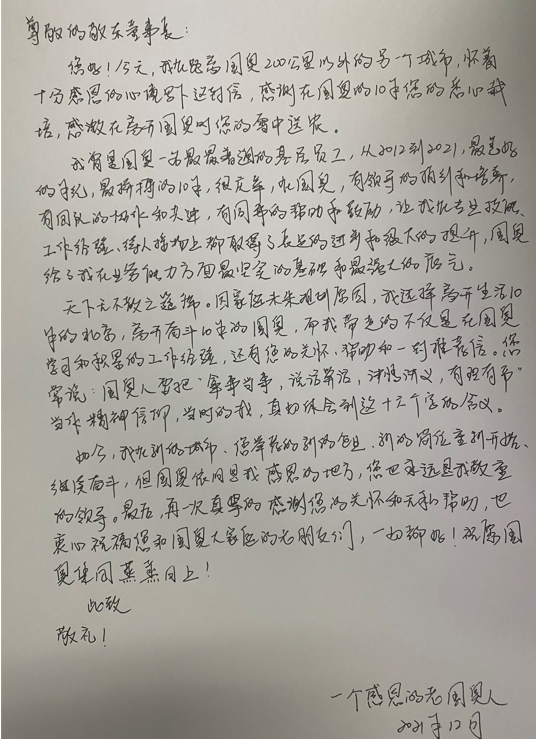 尊敬的敬东董事长：
您好！今天，我在距离国奥200公里以外的另一个城市，怀着
十分感恩的心情写下这封信，感谢在国奥的10年您的悉心栽
培，感激在离开国奥时您的雪中送炭。
我曾是国奥一名最最普通的基层员工，从2012到2021，最美好
的年纪，最拼搏的10年，很庆幸，在国奥，有领导的指引和培养，
有团队的协作和共进，有同事的帮助和鼓励，让我在专业技能、
工作经验、待人接物上都取得了长足的进步和极大的提升，国奥
给了我在业务能力方面最坚实的基础和最强大的底气。
天下无不散之筵席。因家庭未来规划原因，我选择离开生活10
年的北京，离开奋斗10年的国奥，而我带走的不仅是在国奥
学习和积累的工作经验，还有您的关怀、帮助和一封推荐信。您
常说：国奥人要把“拿事当事，说话算话，讲情讲义，有胆有节”
当作精神信仰，当时的我，真切体会到这十六个字的含义。
如今，我在新的城市、您举荐的新的企业、新的岗位重新开始、
继续奋斗，但国奥依旧是我感恩的地方，您也永远是我敬重
的领导。最后，再一次真挚的感谢您的关怀和无私帮助，也
衷心祝福您和国奥大家庭的老朋友们，一切都好！祝愿国
奥集团蒸蒸日上！
此致
敬礼！
一个感恩的老国奥人
2021年12月